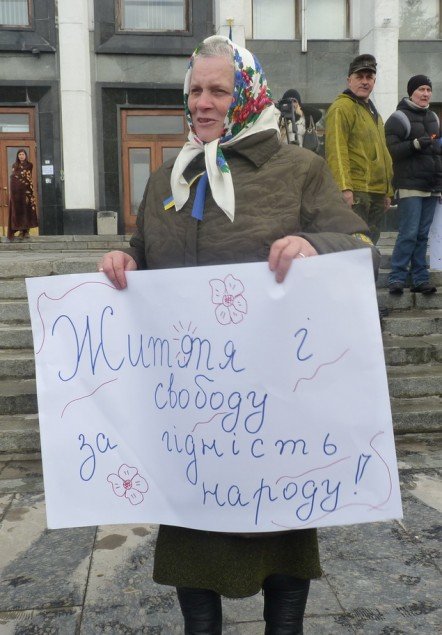 Життя і
свободу
за гідність
народу!